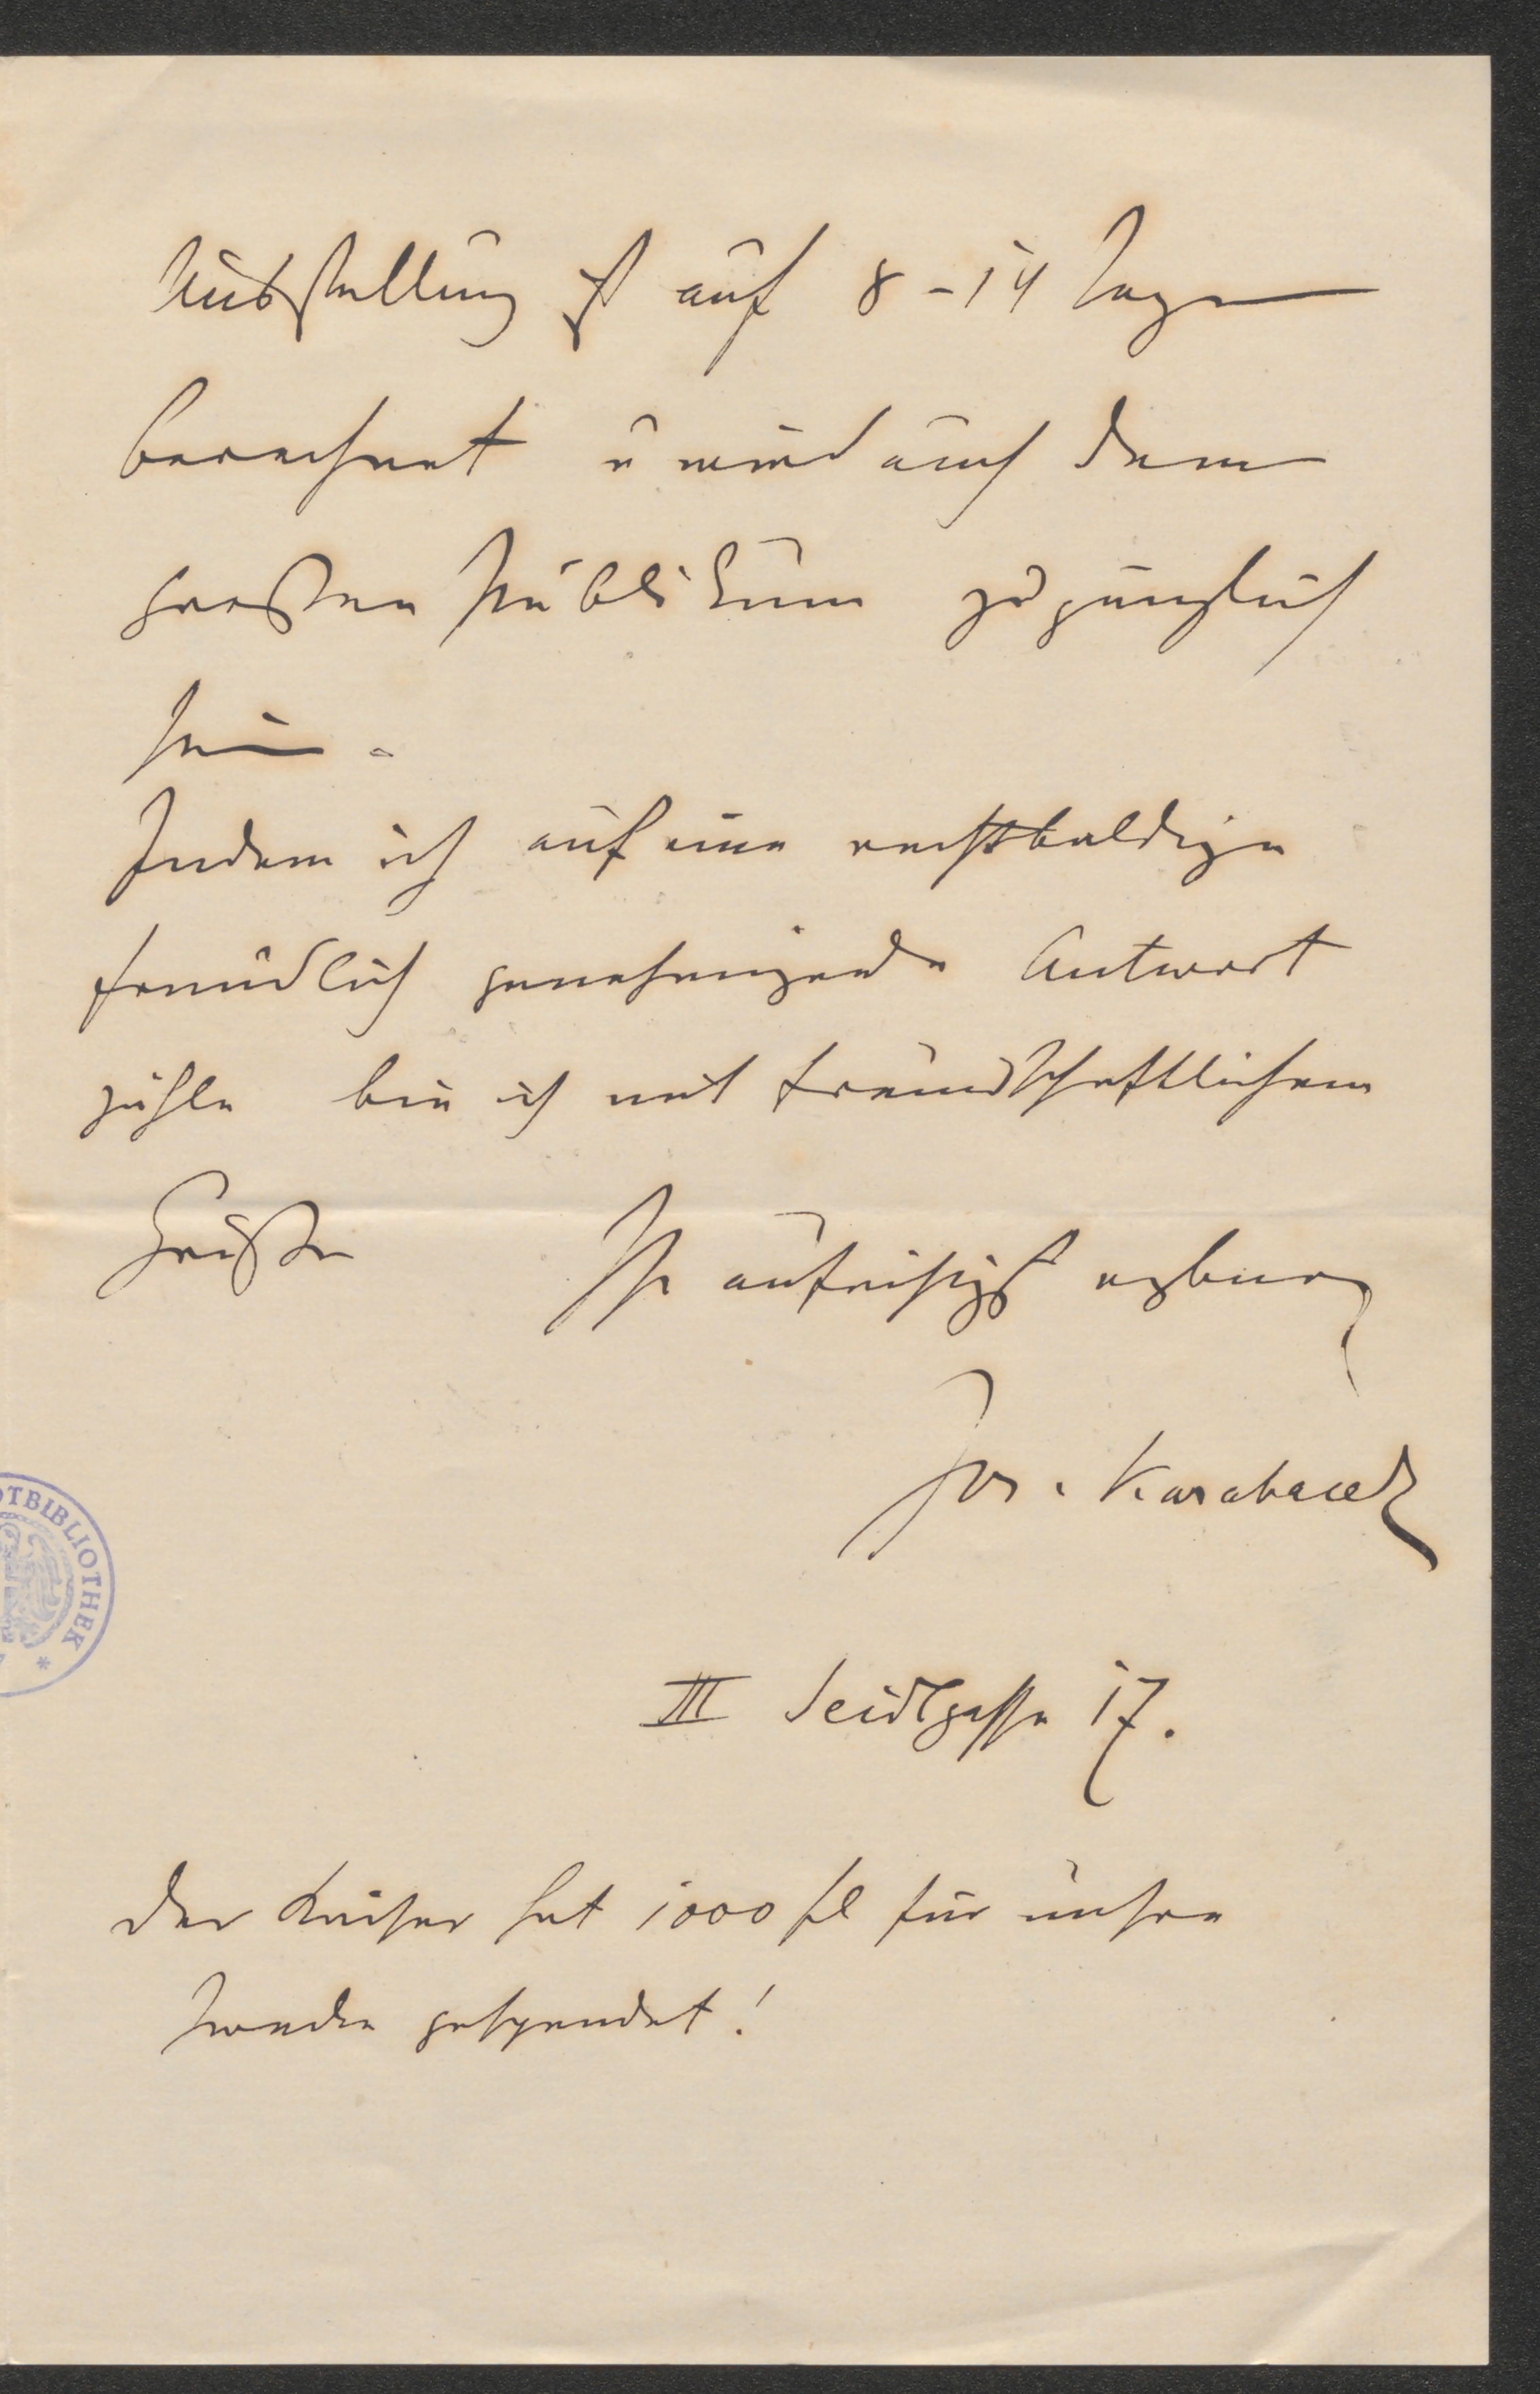 Ausstellung ist auf 8-14 Tage
berechnet u wird auch dem
großen Publikum zugänglich
sein.
Indem ich auf eine rechtbaldige
freundlich genehmigende Antwort
zähle bin ich mit freundschaftlichem
Gruße Ihr aufrichtigst ergbener
Jos. Karabacek
III Seidlgasse 17.
Der Kaiser hat 1000 fl für unsere
Zwecke gespendet!
OTBIBLIOTHEK *